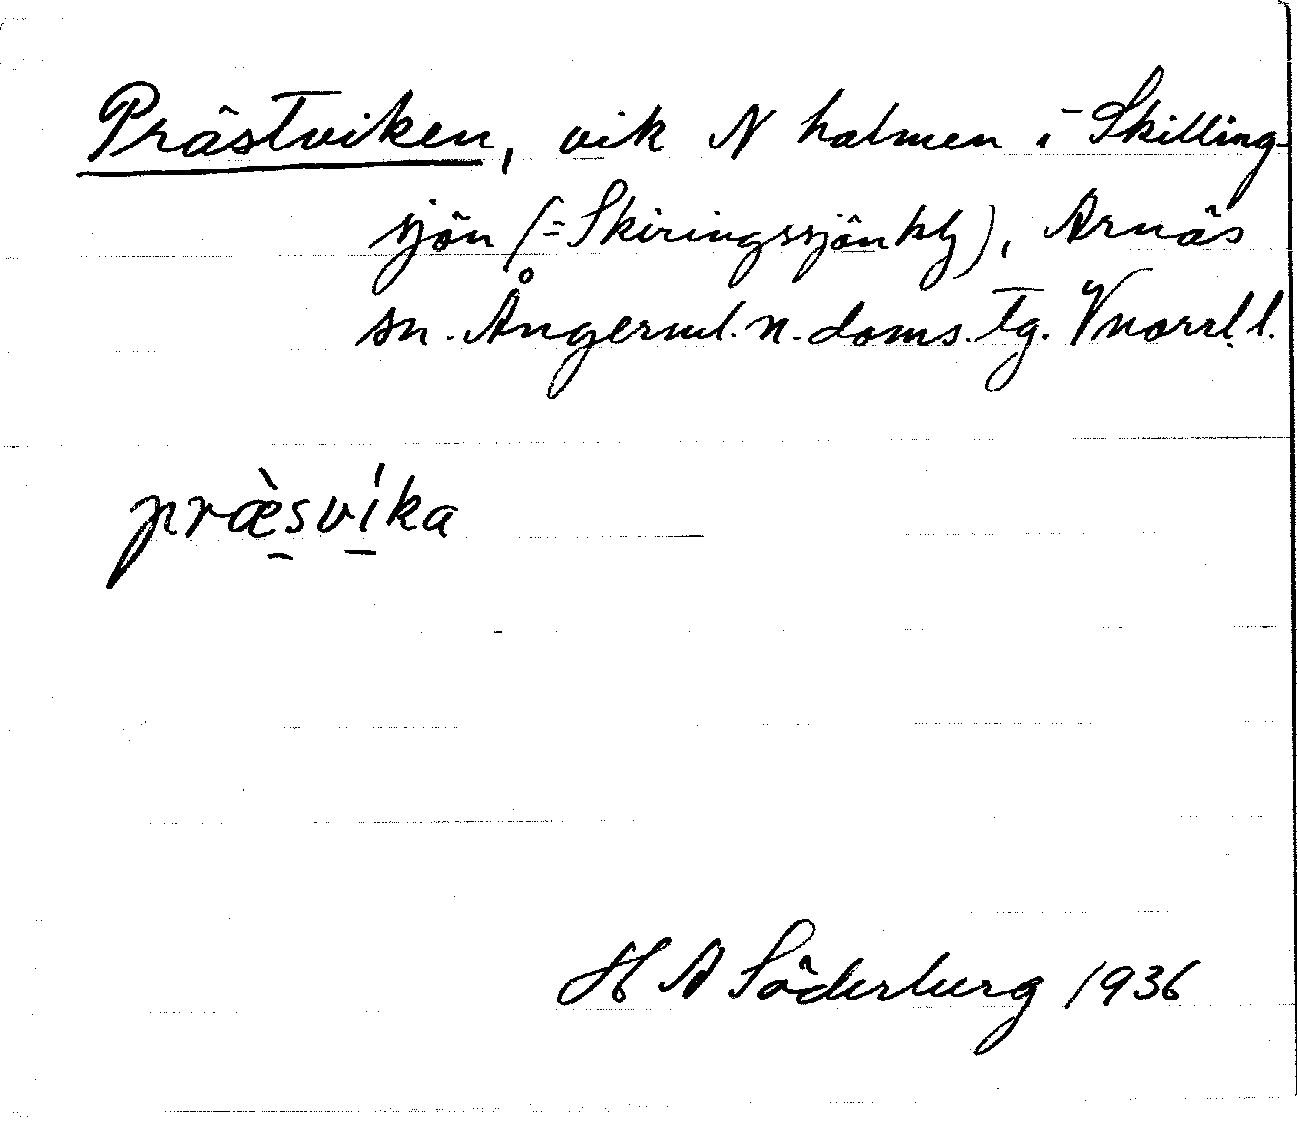 Prästviken, vik N holmen i Skilling-
sjön (= Skiringssjön kbl), Arnäs
sn. Ångerml. n. doms. tg. Vnorrl. l.
præ̀svíka
H A Söderberg 1936